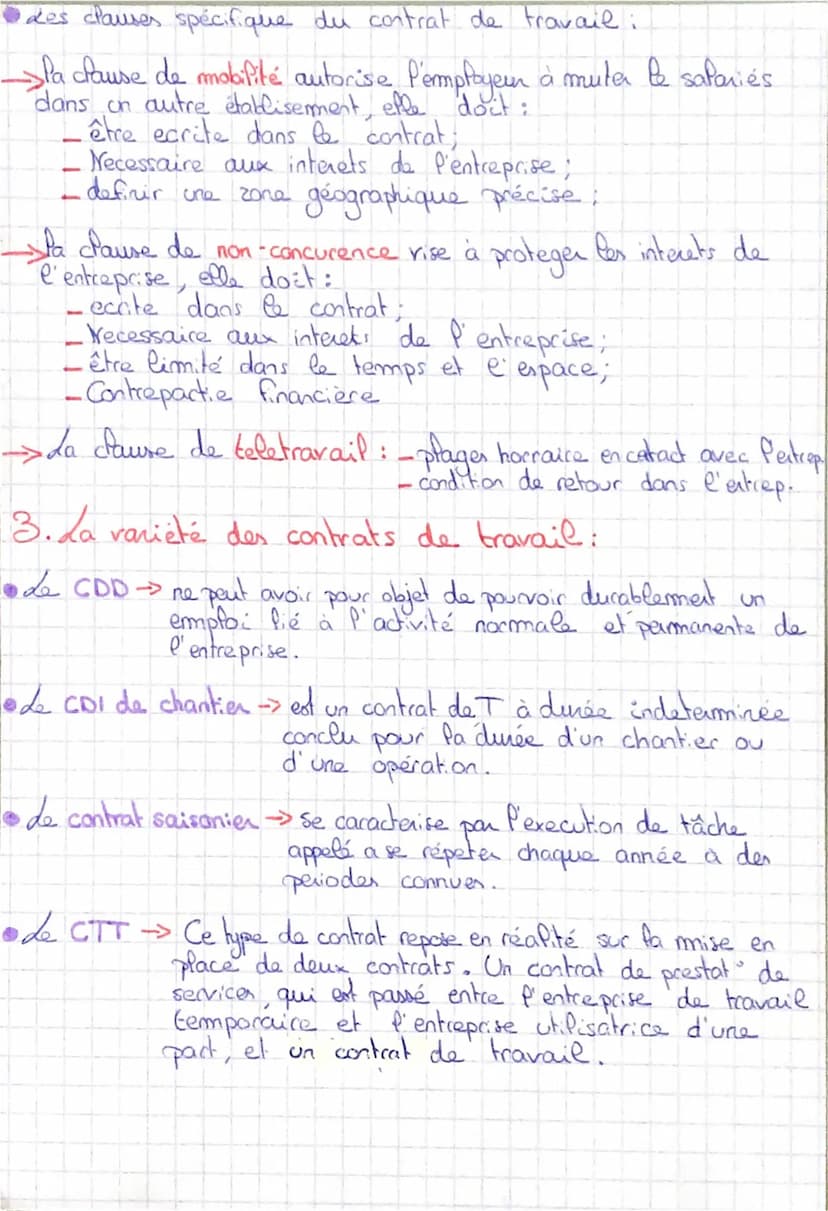 • Les clauses spécifique du contrat de travail :
→ la clause de mobilité autorise l'employeur à muter le salariés
dans un autre établisement, elle doit :
– être ecrite dans le contrat ;
– Necessaire aux interets de l'entreprise ;
– definir une zone géographique précise ;
→ la clause de non-concurence vise à proteger les interets de
l'entreprise, elle doit :
– ecrite dans le contrat ;
– Necessaire aux interets de l'entreprise ;
– être limité dans le temps et l'espace ;
– Contrepactie financière
→ La clause de teletravail : – plages horraire en catract avec l'entrep.
– condition de retour dans l'entrep.
3. La variété des contrats de travail :
• Le CDD → ne peut avoir pour objet de pourvoir durablement un
emploi lié à l'activité normale et permanente de
l'entreprise.
• Le CDI de chantier → est un contrat de T à durée indeterminée
conclu pour la durée d'un chantier ou
d'une opération.
• Le contrat saisonier → se caracterise par l'execution de tâche
appelé a se répeter chaque année à des
periodes connues.
• Le CTT → Ce type de contrat repose en réalité sur la mise en
place de deux contrats. Un contrat de prestat° de
services, qui est passé entre l'entreprise de travail
temporaire et l'entreprise utilisatrice d'une
part, et un contrat de travail.